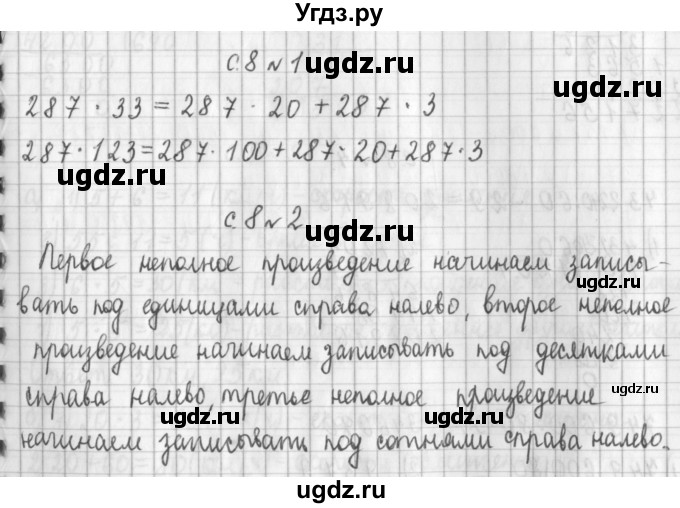 Угдз.ру
с. 8 № 1 ugdz.ru
ugdz.ru
287 · 33 = 287 · 20 + 287 · 3
287 · 123 = 287 · 100 + 287 · 20 + 287 · 3
ugdz.ru
с. 8 № 2 ugdz.ru
Первое неполное произведение начинаем записы-
ugdz.ru
вать под единицами справа налево, второе неполное
произведение начинаем записывать под десятками
справа налево, третье неполное произведение ugdz.ru
ugdz.ru ugdz.ru
начинаем записывать под сотнями справа налево.
ugdz.ru
ugdz.ru